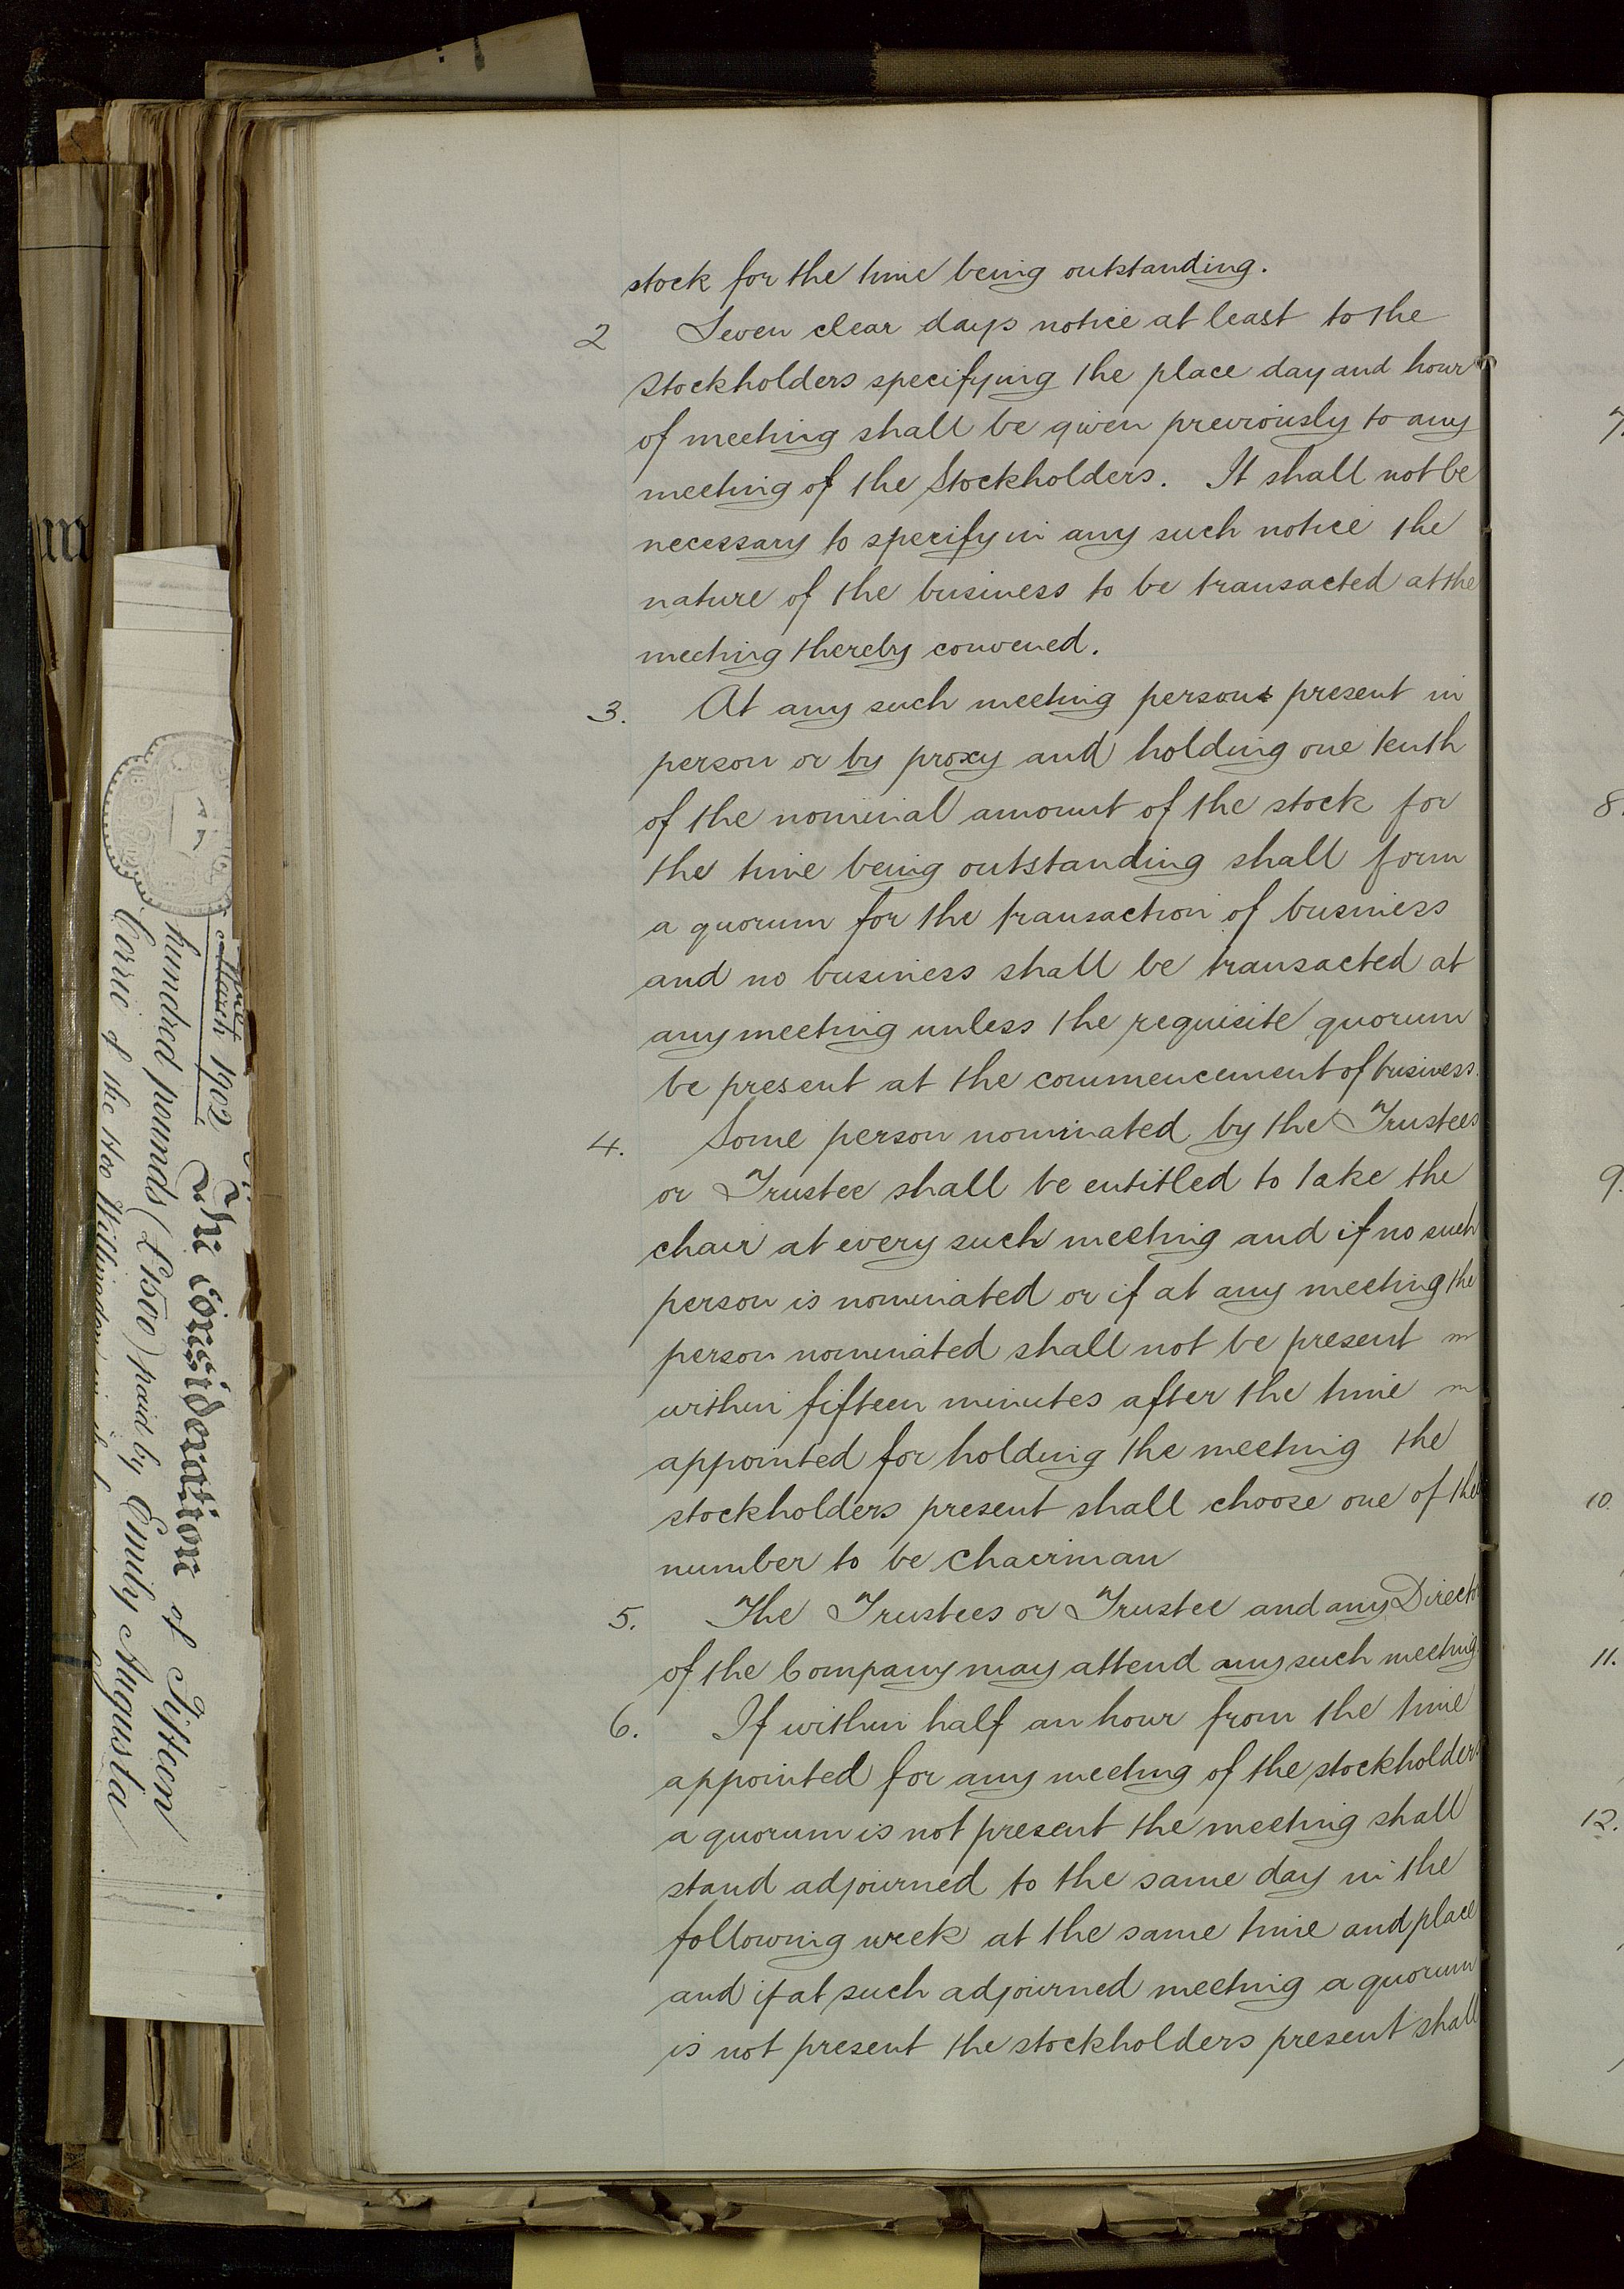 stock for the time being outstanding.
2 Seven clear days notice at least to the
stockholders specifying the place day and hour
of meeting shall be given previously to any
meeting of the Stockholders. It shall not be
necessary to specify in any such notice the
nature of the business to be transacted at the
meeting thereby convened.
3. At any such meeting persons present in
person or by proxy and holding one tenth
of the nominal amount of the stock for
the time being outstanding shall form
a quorum for the transaction of business
and no business shall be transacted at
any meeting unless the requisite quorum
be present at the commencement of business.
4. Some person nominated by the Trustees
or Trustee shall be entitled to take the
chair at every such meeting and if no such
person is nominated or if at any meeting the
person nominated shall not be present
within fifteen minutes after the time
appointed for holding the meeting the
stockholders present shall choose one of the
number to be Chairman
5. The Trustees or Trustee and any Direct
of the Company may attend any such meeting
6. If within half an hour from the time
appointed for any meeting of the stockholders
a quorum is not present the meeting shall
stand adjourned to the same day in the
following week at the same time and place
and if at such adjourned meeting a quorum
is not present the stockholders present shall
7.
8.
9.
10.
11.
12.
March 1902 The Consideration of Fifteen
hundred pounds (£1500) paid by Emily Augusta
of the